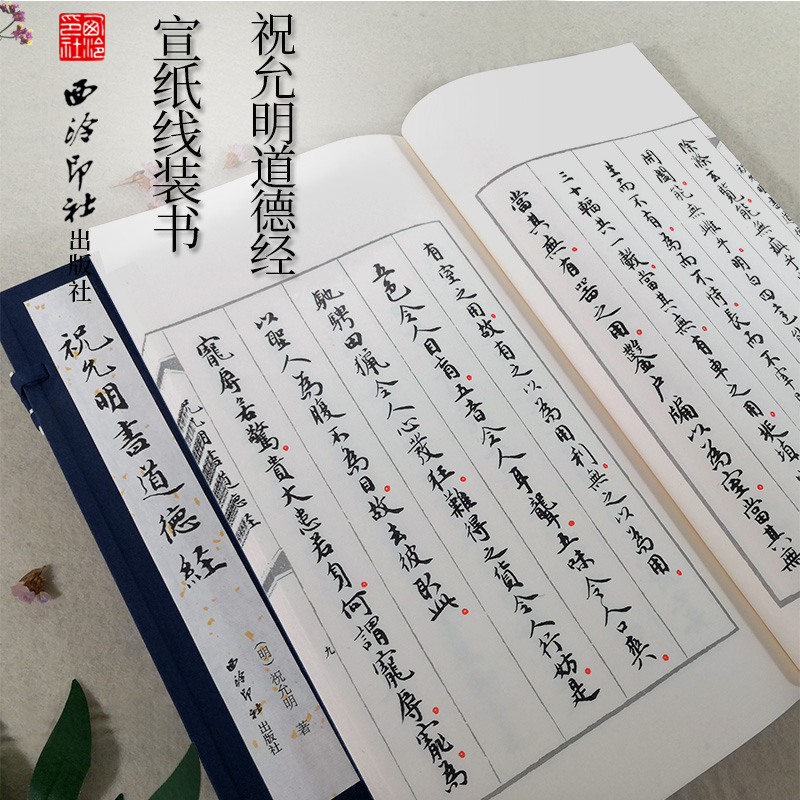 西泠印社
西泠印社出版社
祝允明道德经
宣纸线装书
除滌玄覧能無疵乎
開闔能無雌乎明白四達能
生而不有為而不恃長而不宰
三十輻共一轂當其無有車之用埏埴
當其無有器之用鑿户牖以為室當其無
有室之用故有之以為用利無之以為用
五色令人目盲五音令人耳聾五味令人口爽
馳騁田獵令人心發狂難得之貨令人行妨是
以聖人為腹不為目故去彼取此
寵辱若驚貴大患若身何謂寵辱寵為
祝允明書道德经
九
祝允明書道德経
(明)祝允明 著
西泠印社出版社